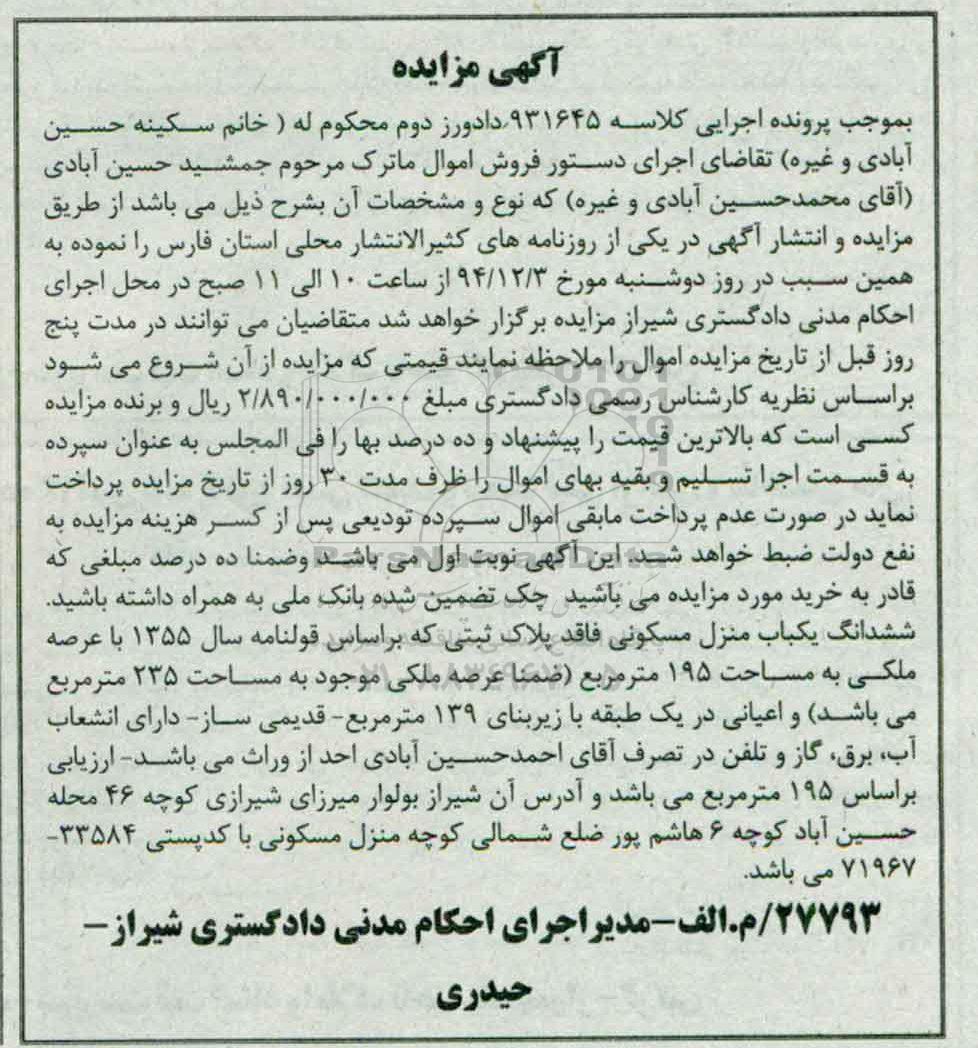 آگهی مزایده
بموجب پرونده اجرایی کلاسه ۹۳۱۶۴۵،دادورز دوم محکوم له ( خانم سکینه حسین
آبادی و غیره) تقاضای اجرای دستور فروش اموال ماترک مرحوم جمشید حسین آبادی
(آقای محمدحسین آبادی و غیره) که نوع و مشخصات آن بشرح ذیل می باشد از طریق
مزایده و انتشار آگهی در یکی از روزنامه های کثیرالانتشار محلی استان فارس را نموده به
همین سبب در روز دوشنبه مورخ ۹۴/۱۲/۳ از ساعت ۱۰ الی ۱۱ صبح در محل اجرای
احکام مدنی دادگستری شیراز مزایده برگزار خواهد شد متقاضیان می توانند در مدت پنج
روز قبل از تاریخ مزایده اموال را ملاحظه نمایند قیمتی که مزایده از آن شروع می شود
براساس نظریه کارشناس رسمی دادگستری مبلغ ۲/۸۹۰/۰۰۰/۰۰۰ ریال و برنده مزایده
کسی است که بالاترین قیمت را پیشنهاد و ده درصد بها را فی المجلس به عنوان سپرده
به قسمت اجرا تسلیم و بقیه بهای اموال را ظرف مدت ۳۰ روز از تاریخ مزایده پرداخت
نماید در صورت عدم پرداخت مابقی اموال سپرده تودیعی پس از کسر هزینه مزایده به
نفع دولت ضبط خواهد شد. این آگهی نوبت اول می باشد وضمنا ده درصد مبلغی که
ParsNamadData
قادر به خرید مورد مزایده می باشید چک تضمین شده بانک ملی به همراه داشته باشید.
ششدانگ یکباب منزل مسکونی فاقد پلاک ثبتی که براساس قولنامه سال ۱۳۵۵ با عرصه
ملکی به مساحت ۱۹۵ مترمربع (ضمنا عرصه ملکی موجود به مساحت ۲۳۵ مترمربع
می باشد) و اعیانی در یک طبقه با زیربنای ۱۳۹ مترمربع- قدیمی ساز- دارای انشعاب
آب، برق، گاز و تلفن در تصرف آقای احمدحسین آبادی احد از وراث می باشد- ارزیابی
براساس ۱۹۵ مترمربع می باشد و آدرس آن شیراز بولوار میرزای شیرازی کوچه ۴۶ محله
حسین آباد کوچه ۶ هاشم پور ضلع شمالی کوچه منزل مسکونی با کدپستی ۳۳۵۸۴-
۷۱۹۶۷ می باشد.
۲۷۷۹۳/م.الف-مدیر اجرای احکام مدنی دادگستری شیراز-
حیدری